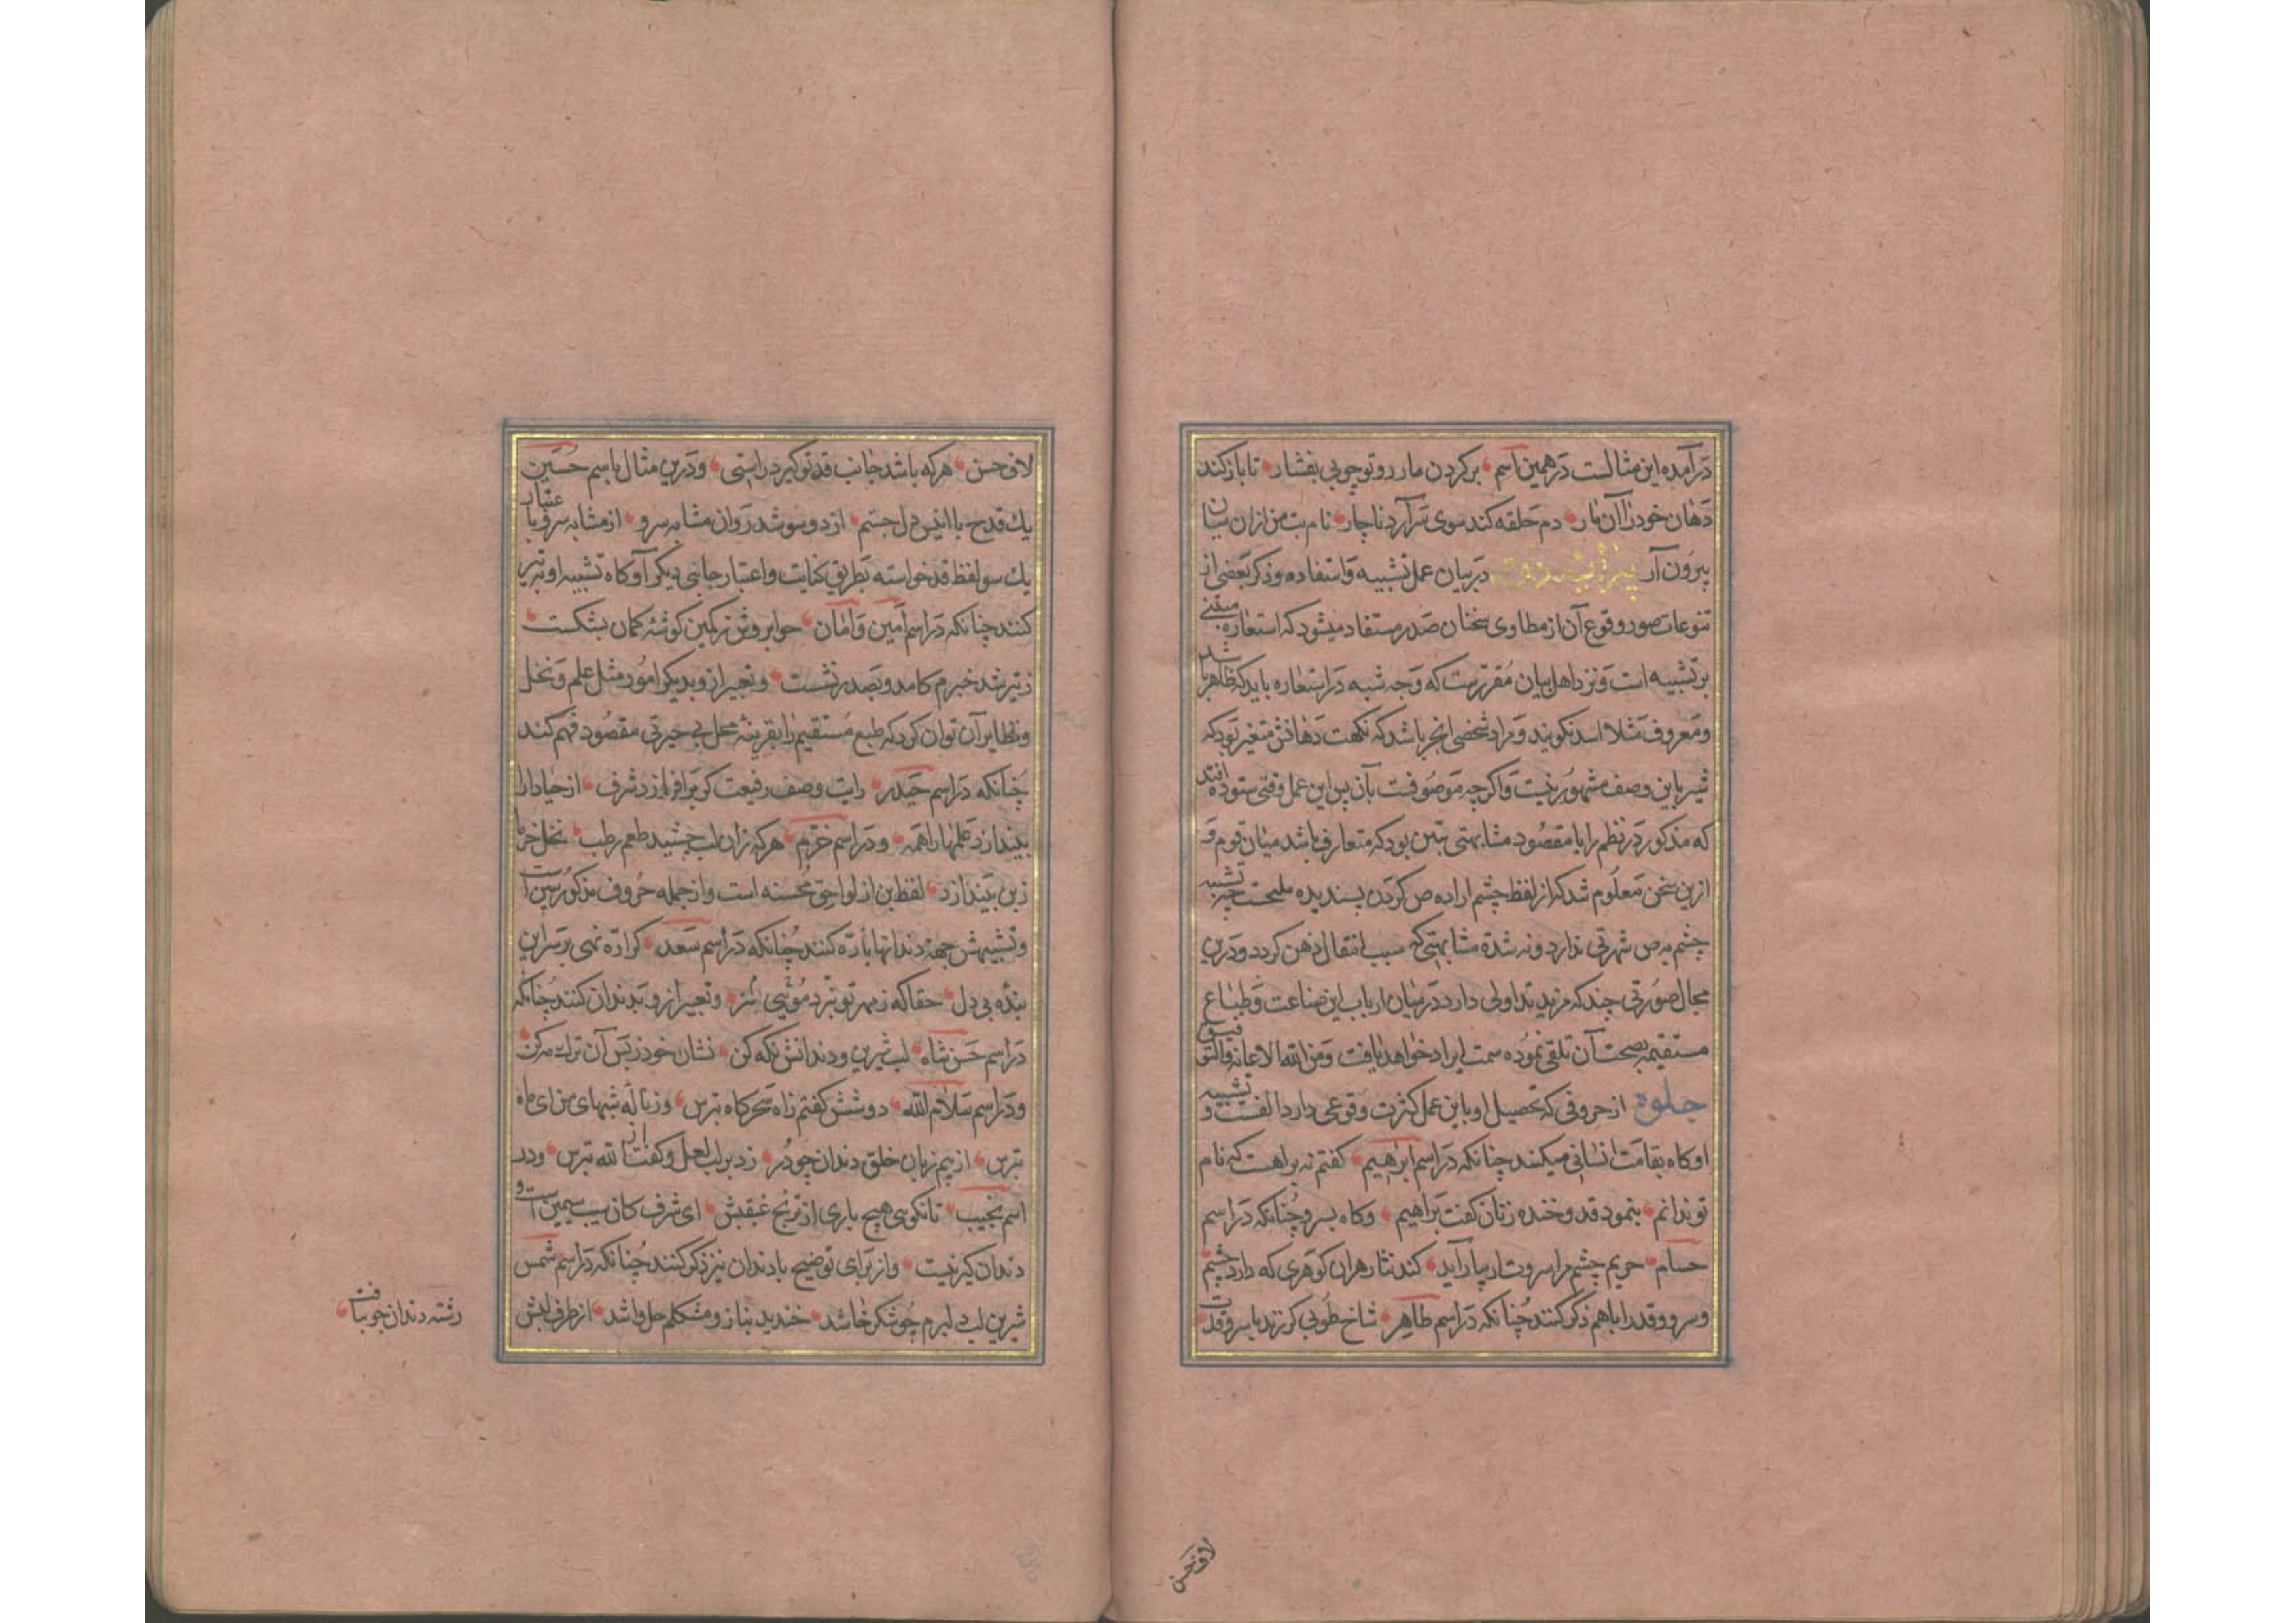 درآمده این مثالست در همین اسم برکردن مار رو تو چوبی بفشار تا باز کند
دهان خود را آن مار دم حلقه کند سوی سر آرد ناچار نام بت من ازان میان
بیرون آر پیرایه دوم در بیان عمل تشبیه و استفاده و ذکر بعضی از
تنوعات صور وقوع آن از مطاوی سخنان صدر مستفاد میشود که استعاره مبتنی
بر تشبیه است و نزد اهل بیان مقررست که وجه شبه در استعاره باید که ظاهر باشد
و معروف مثلا اسد نگویند و مراد شخصی ابخر باشد که نکهت دهانش متغیر بود که
شیر باین وصف مشهور نیست و اگرچه موصوفست بآن پس این عمل وقتی ستوده افتد
که مذکور در نظم را با مقصود مشابهتی بین بود که متعارف باشد میان قوم و
ازین سخن معلوم شد که از لفظ چشم اراده ص کردن پسندیده نیست چه تشبیه
چشم به ص شهرتی ندارد و نه شدة مشابهتی که سبب انتقال ذهن گردد و درین
مجال صورتی چند که مزید تداولی دارد در میان ارباب این صناعت و طباع
مستقیمه بصحت آن تلقی نموده سمت ایراد خواهد یافت و من الله الاعانة والتوفیق
جلوه از حروفی که تحصیل او باین عمل کثرت وقوعی دارد الفست و تشبیه
او کاه بقامت انسانی میکنند چنانکه در اسم ابراهیم گفتم نه براهست که نام
تو ندانم بنمود قد و خنده زنان گفت براهیم و کاه بسرو چنانکه در اسم
حسام حریم چشم مرا سروت ار بیاراید کند نثار رهت آن گوهری که دارد چشم
و سرو و قد را با هم ذکر کنند چنانکه در اسم طاهر شاخ طوبی گر زند با سرو قدت
لاف حسن
لاف حسن هرکه باشد جانب قد تو گیرد راستی و درین مثال باسم حسین
یک قدح با انیس دل جستم از دو سو شد روان مشابه سرو از مشابه سرو باعتبار
یک سو لفظ قد خواسته بطریق کنایت و اعتبار جانبی دیگر آ و کاه تشبیه او بتیر
کنند چنانکه در اسم امین و امان چو ابروش ز کمین گوشه کمان بشکست
ز تیر شد خبرم کامد و بصدر نشست و تعبیر ازو بدیگر امور مثل علم و نخل
و نظایر آن توان کرد که طبع مستقیم را بقرینه محل بی حیرتی مقصود فهم کند
چنانکه در اسم حیدر رایت وصف رفیعت گر برافرازد شرف از حیا دارا
بیندازد علمها را همه و در اسم خرم هرکه زان لب چشید طعم رطب نخل خرما
ز بن بیندازد لفظ بن از لواحق محسنه است و از جمله حروف مذکور سین است
و تشبیهش جهة دندانها باره کنند چنانکه در اسم سعد گر اره نهی بر سر این
بنده بی دل حقا که ز مهر تو نبرد مویی نیز و تعبیر ازو بدندان کنند چنانکه
در اسم حسن شاه لب شیرین و دندانش نگه کن نشان خود ز بس آن ترک مه کن
و در اسم سلام الله دوشش گفتم ز آه سحرگاه بترس وز ناله شبهای من ای ماه
بترس از بیم زبان خلق دندان چو در زد بر لب لعل و گفتا از الله بترس و در
اسم نجیب تا نگویی هیچ باری از ترنج غبغبش ای شرف کان سیب سیمین است و
دندان گیر نیست و از برای توضیح با دندان نیز ذکر کنند چنانکه در اسم شمس
شیرین لب دلبرم چو شکر خا شد خندید بناز و مشکلم حل وا شد از طرف لبش
رشته دندان چو بتافت